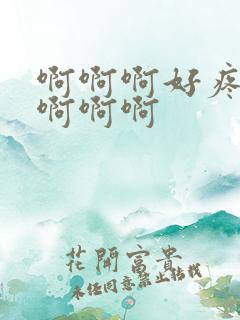 啊啊啊好疼
啊啊啊
花開富貴
未经同意禁止转载